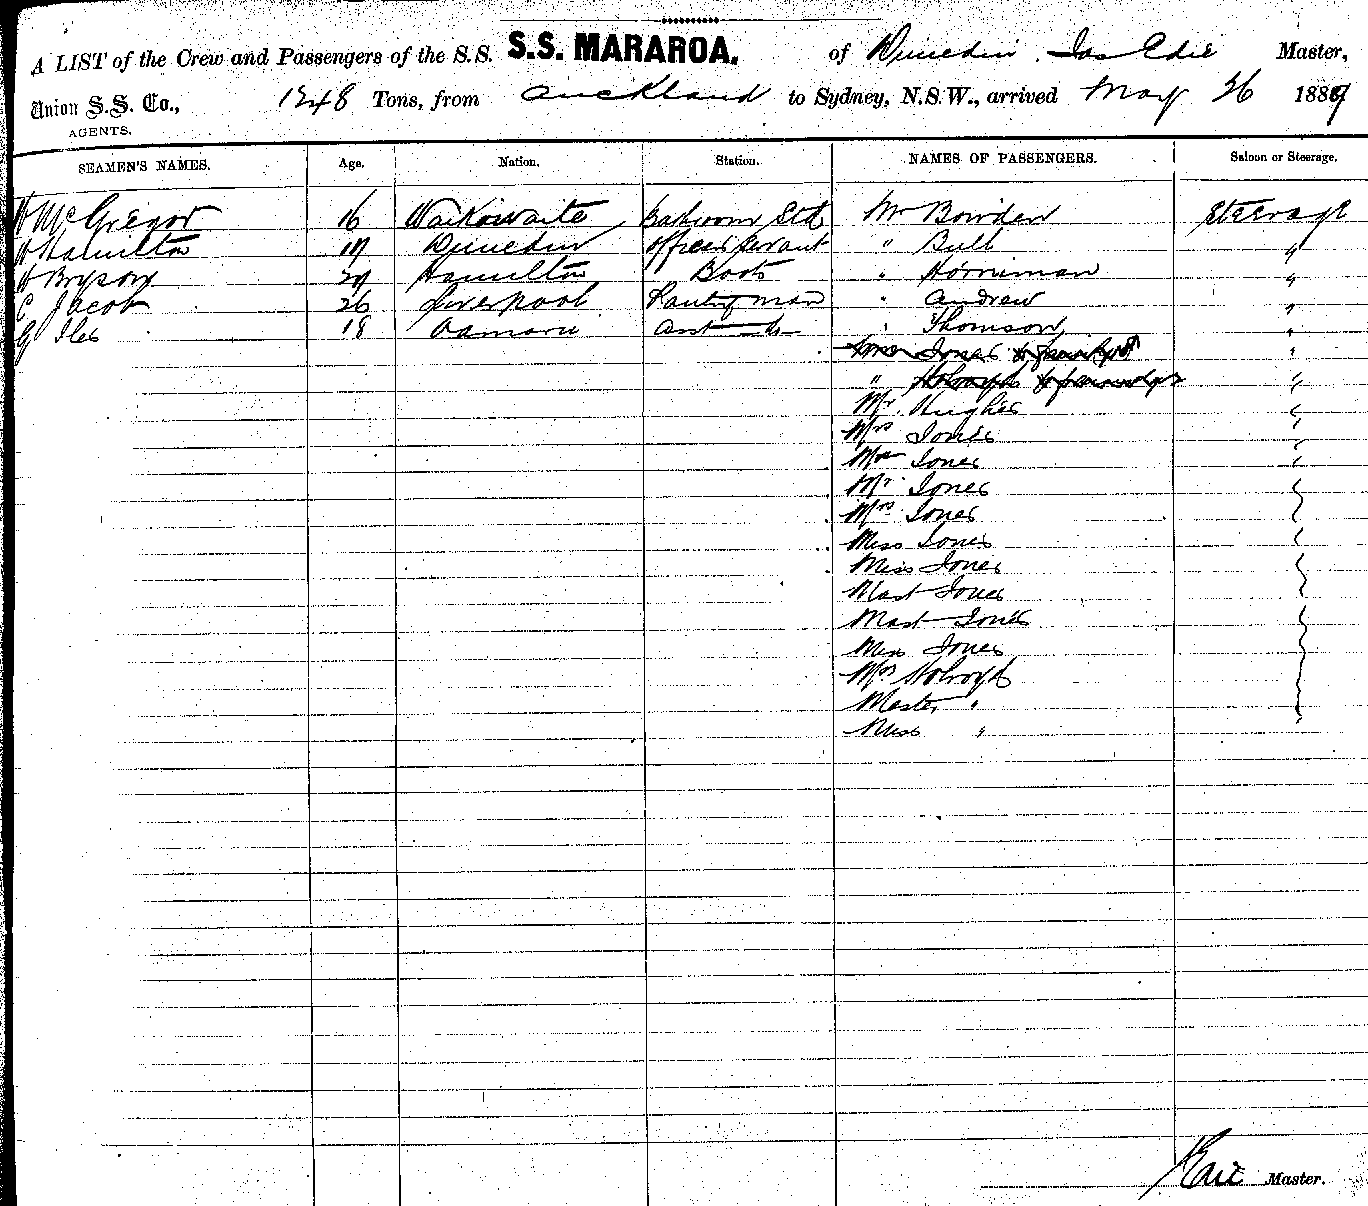 A LIST of the Crew and Passengers of the S.S. S.S. MARAROA. of Dunedin. Jas Edie Master,
Union S.S. Co., 1248 Tons, from Auckland to Sydney, N.S.W., arrived May 26 1889
AGENTS.
SEAMEN'S NAMES. Age. Nation. Station. NAMES OF PASSENGERS. Saloon or Steerage.
W McGregor 16 Waikowaite Mr Bowden Steerage
W Hamilton Dunedin Officers Servant " Bull "
W Bryson Hamilton Boots " Horniman "
C Jacob 26 Liverpool Pantryman " Andrew "
G Iles 18 Oamaru " Thomson "
Jones "
" "
Mr. Hughes "
Mrs Jones "
Jones "
Mr. Jones
Mrs Jones
Miss Jones
Miss Jones
Mast Jones
Mast Jones
Miss Jones
Mrs Holroyd
Master "
Miss " "
Master.